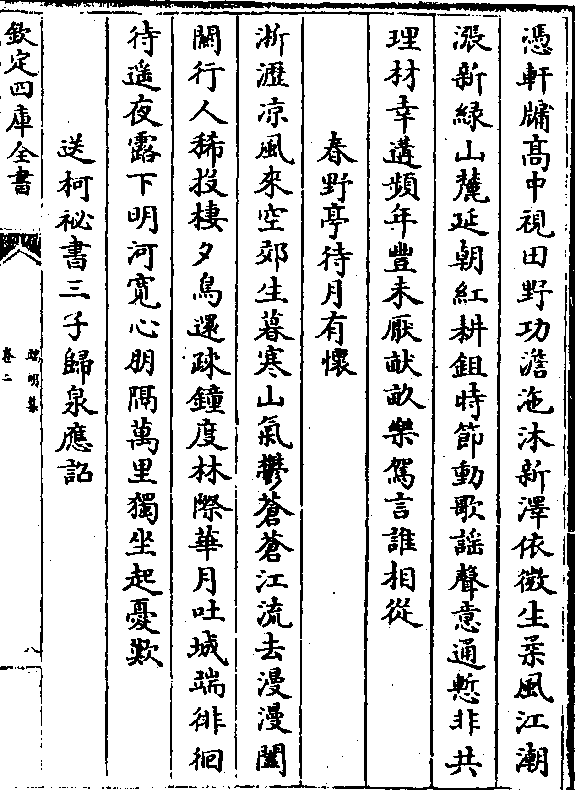 憑軒牖高中視田野功澹沲沐新澤依微生柔風江潮
漲新緑山麓延朝紅耕鉏時節動歌謡聲意通慙非共
理材幸遘頻年豐未厭畎畝樂駕言誰相從
春野亭待月有懷
淅瀝凉風來空郊生暮寒山氣鬱蒼蒼江流去漫漫闤
闠行人稀投棲夕鳥還疎鐘度林際華月吐城端徘徊
待遥夜露下明河寛心朋隔萬里獨坐起憂歎
送柯祕書三子歸泉應詔
欽定四庫全書
端明集
卷二
八